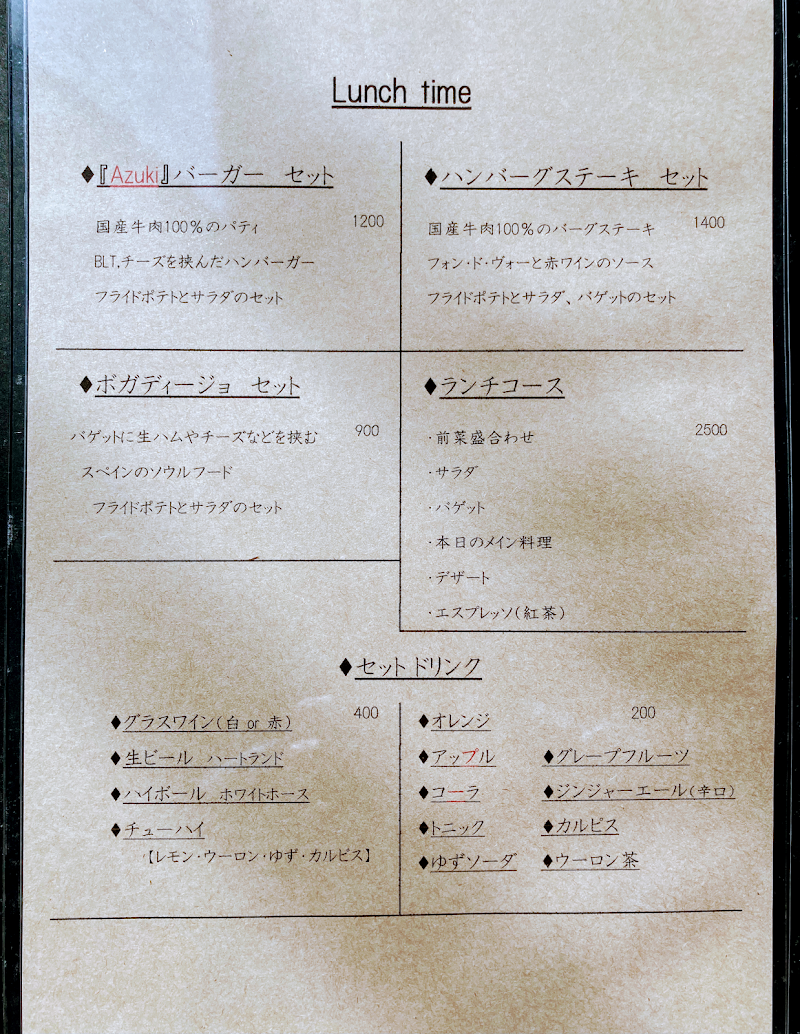 Lunch time
◆『Azuki』バーガー セット
国産牛肉100%のパティ 1200
BLT,チーズを挟んだハンバーガー
フライドポテトとサラダのセット
◆ハンバーグステーキ セット
国産牛肉100%のバーグステーキ 1400
フォン・ド・ヴォーと赤ワインのソース
フライドポテトとサラダ、バゲットのセット
◆ボガディージョ セット
バゲットに生ハムやチーズなどを挟む 900
スペインのソウルフード
フライドポテトとサラダのセット
◆ランチコース
・前菜盛合わせ 2500
・サラダ
・バゲット
・本日のメイン料理
・デザート
・エスプレッソ(紅茶)
◆セットドリンク
◆グラスワイン(白 or 赤) 400
◆生ビール ハートランド
◆ハイボール ホワイトホース
◆チューハイ
【レモン・ウーロン・ゆず・カルピス】
◆オレンジ 200
◆アップル ◆グレープフルーツ
◆コーラ ◆ジンジャーエール(辛口)
◆トニック ◆カルピス
◆ゆずソーダ ◆ウーロン茶